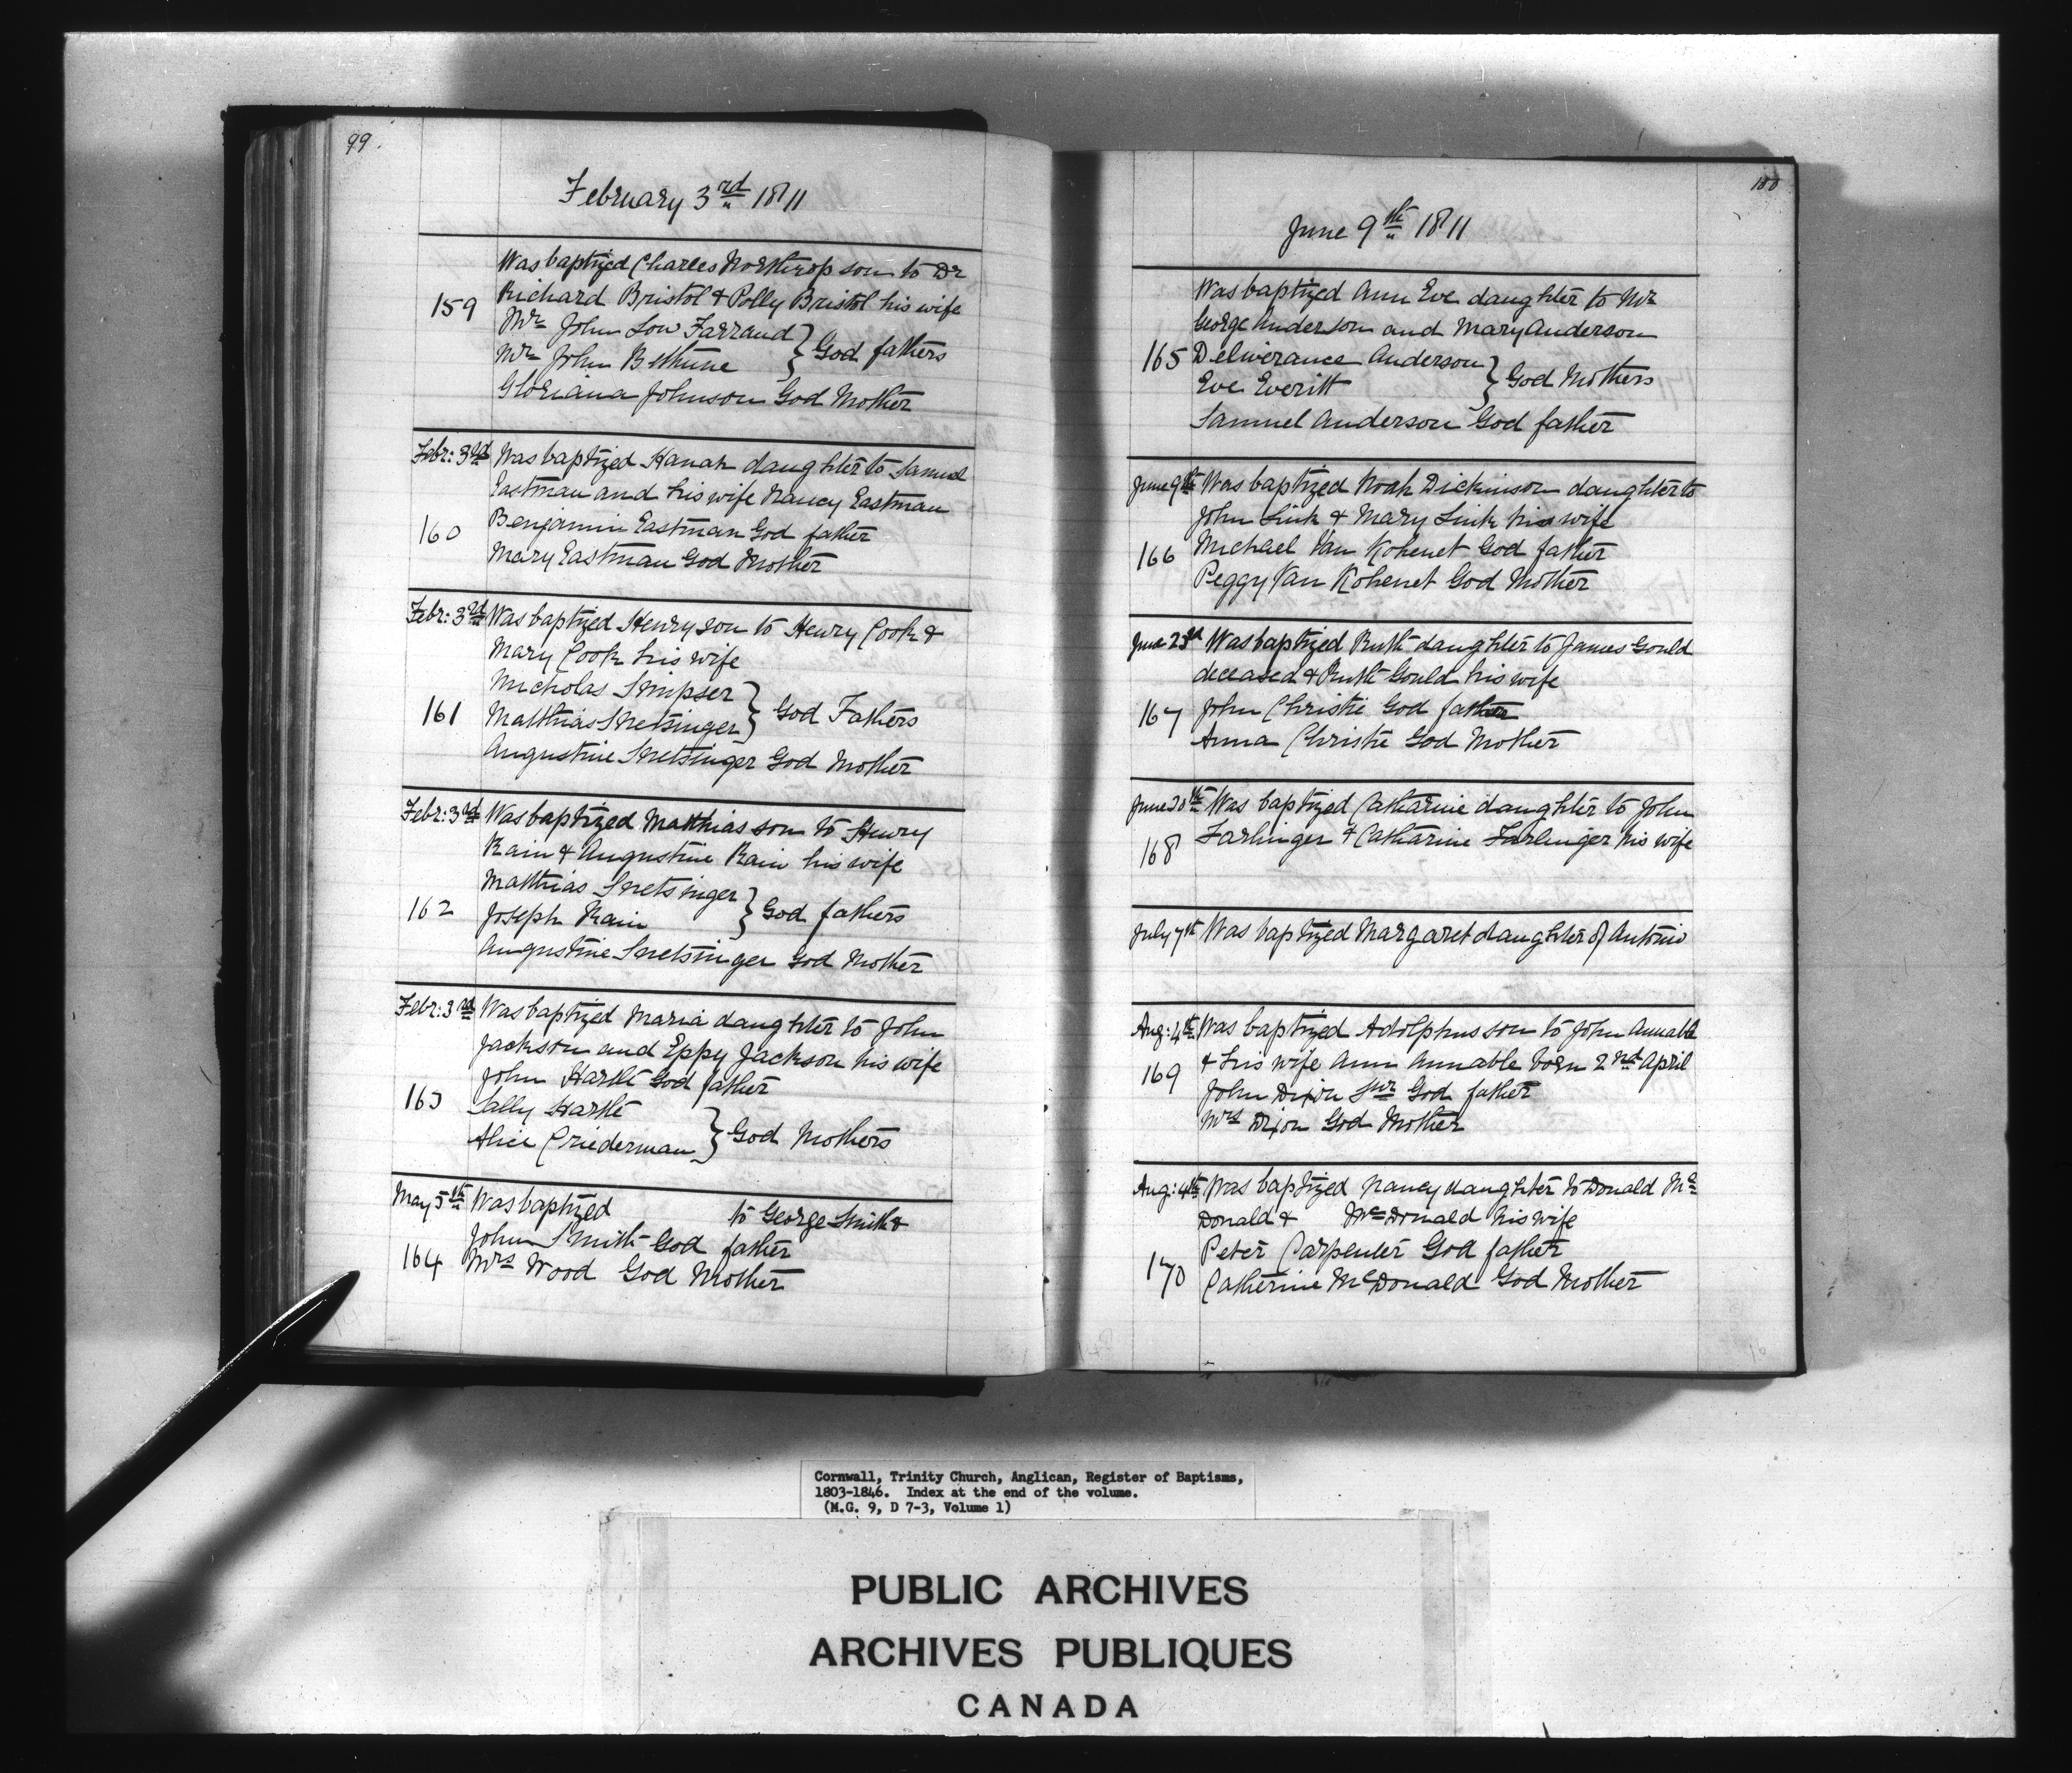 99.
February 3rd 1811
Was baptized Charles Northrop son to Dr
159 Richard Bristol & Polly Bristol his wife
Mr John Low Farrand
Mr John Bethune } God fathers
Gloriana Johnson God Mother
Febr: 3rd Was baptized Hanah daughter to Samuel
Eastman and his wife Nancy Eastman
160 Benjamin Eastman God father
Mary Eastman God Mother
Febr: 3rd Was baptized Henry son to Henry Cook &
Mary Cook his wife
Nicholas Smipser
161 Matthias Snetsinger } God Fathers
Augustine Snetsinger God Mother
Febr: 3rd Was baptized Matthias son to Henry
Rain & Augustine Rain his wife
Matthias Snetsinger
162 Joseph Rain } God fathers
Augustine Snetsinger God Mother
Febr: 3rd Was baptized Maria daughter to John
Jackson and Eppy Jackson his wife
John Hartle God father
163 Sally Hartle
Alice Criederman } God Mothers
May 5th Was baptized to George Smith &
John Smith God father
164 Mrs Wood God Mother
100
June 9th 1811
Was baptized Ann Eve daughter to Mr
George Anderson and Mary Anderson
165 Deliverance Anderson
Eve Everitt } God Mothers
Samuel Anderson God father
June 9th Was baptized Noah Dickinson daughter to
John Link & Mary Link his wife
166 Michael Van Kohenet God father
Peggy Van Kohenet God Mother
June 23d Was baptized Ruth daughter to James Gould
deceased & Ruth Gould his wife
167 John Christie God father
Anna Christie God Mother
June 30th Was baptized Catharine daughter to John
168 Farlinger & Catharine Farlinger his wife
July 7th Was baptized Margaret daughter of Antonio
Aug: 4th Was baptized Adolphus son to John Annable
169 & his wife Ann Annable born 2nd April
John Dixon Snr God father
Mrs Dixon God Mother
Aug: 4th Was baptized Nancy daughter to Donald Mc
Donald & McDonald his wife
Peter Carpenter God father
170 Catherine McDonald God Mother
Cornwall, Trinity Church, Anglican, Register of Baptisms,
1803-1846. Index at the end of the volume.
(M.G. 9, D 7-3, Volume 1)
PUBLIC ARCHIVES
ARCHIVES PUBLIQUES
CANADA